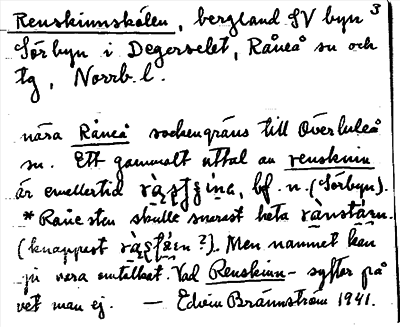 Renskinnskölen, bergland SV byn 3
Sörbyn i Degerselet, Råneå sn och
tg, Norrb. l.
nära Råneå sockengräns till Överluleå
sn. Ett gammalt uttal av renskinn
är emellertid bf. n. (Sörbyn).
skulle snarast heta
(knappast ?). Men namnet kan
ju vara omtalkat. Vad Renskinn- syftar på
vet man ej. — Edvin Brännström 1941.